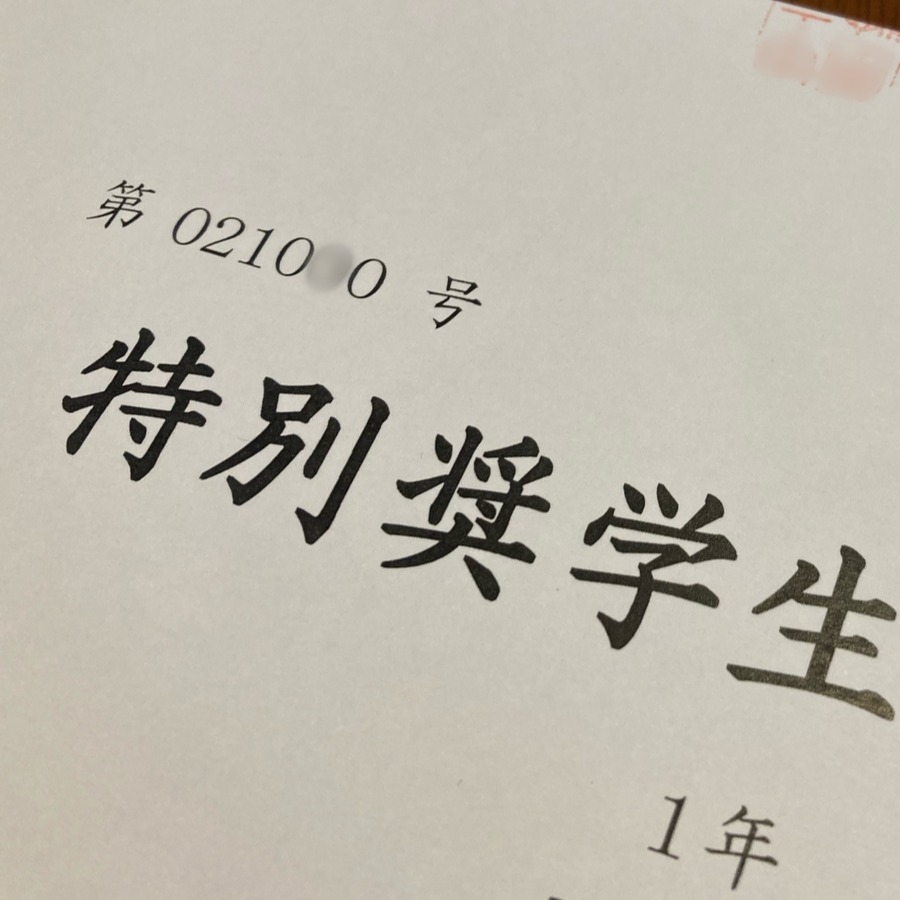 第 02100 号
特別奨学生
1年